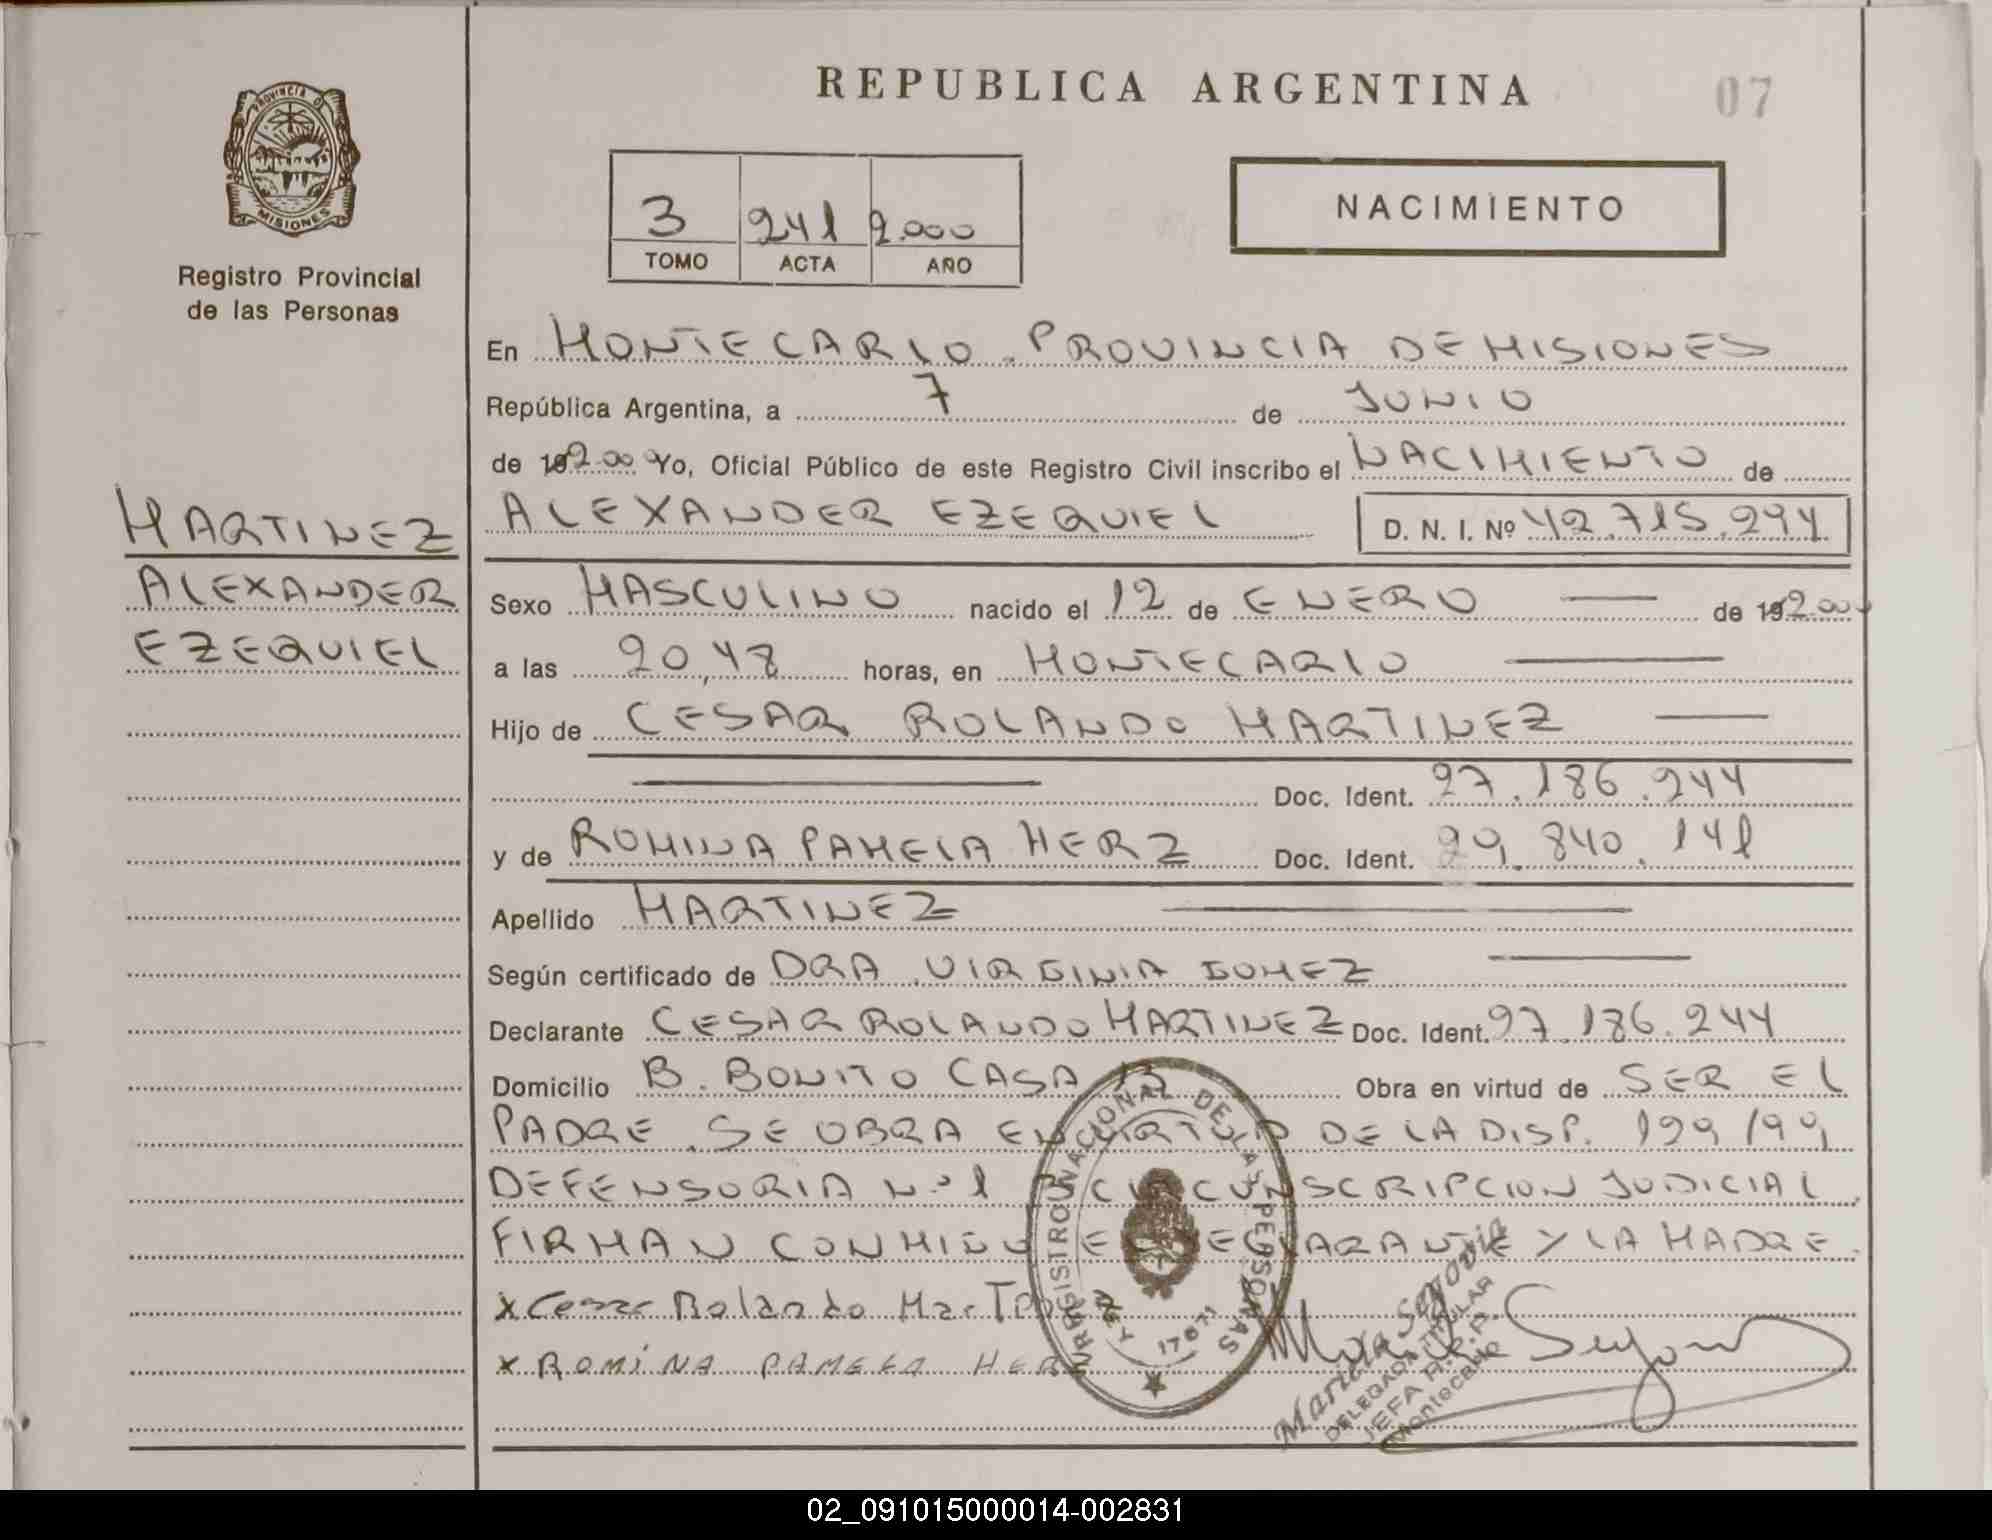 REPUBLICA ARGENTINA
07
PROVINCIA D
MISIONES
Registro Provincial
de las Personas
3 241 2.000
TOMO ACTA AÑO
NACIMIENTO
En MONTECARLO. PROVINCIA DE MISIONES
República Argentina, a 7 de JUNIO
de 192.000 Yo, Oficial Público de este Registro Civil inscribo el NACIMIENTO de
ALEXANDER EZEQUIEL D. N. I. Nº 42.715.294
MARTINEZ
ALEXANDER
EZEQUIEL
Sexo MASCULINO nacido el 12 de ENERO de 192.000
a las 20,48 horas, en MONTECARLO
Hijo de CESAR ROLANDO MARTINEZ
Doc. Ident. 27.186.244
y de ROMINA PAMELA HERZ Doc. Ident. 29.840.141
Apellido MARTINEZ
Según certificado de DRA. VIRGINIA GOMEZ
Declarante CESAR ROLANDO MARTINEZ Doc. Ident. 27.186.244
Domicilio B. BONITO CASA 13 Obra en virtud de SER EL
PADRE. SE OBRA EN VIRTUD DE LA DISP. 129/99
DEFENSORIA N.º 1 CIRCUNSCRIPCION JUDICIAL
FIRMAN CONMIGO EL DECLARANTE Y LA MADRE.
x Cesar Rolando Martinez
x ROMINA PAMELA HERZ
REGISTRO NACIONAL DE LAS PERSONAS
LEY 17671
Maria Segovia
DELEGADA TITULAR
JEFA R.P.P.
Montecarlo
02_091015000014-002831